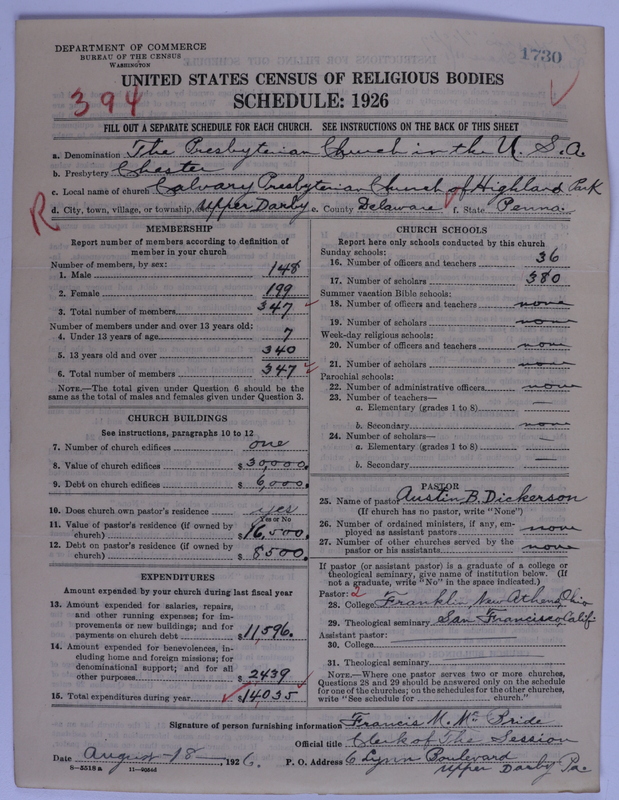 DEPARTMENT OF COMMERCE
BUREAU OF THE CENSUS
WASHINGTON
1730
UNITED STATES CENSUS OF RELIGIOUS BODIES
394
SCHEDULE: 1926
FILL OUT A SEPARATE SCHEDULE FOR EACH CHURCH. SEE INSTRUCTIONS ON THE BACK OF THIS SHEET
a. Denomination The Presbyterian Church in the U. S. A.
b. Presbytery Chester
c. Local name of church Calvary Presbyterian Church of Highland Park
R d. City, town, village, or township Upper Darby e. County Delaware f. State Penna.
MEMBERSHIP
Report number of members according to definition of
member in your church
Number of members, by sex:
1. Male 148
2. Female 199
3. Total number of members 347
Number of members under and over 13 years old:
4. Under 13 years of age 7
5. 13 years old and over 340
6. Total number of members 347
NOTE.—The total given under Question 6 should be
same as the total of males and females given under Question 3.
CHURCH BUILDINGS
See instructions, paragraphs 10 to 12
7. Number of church edifices one
8. Value of church edifices $30,000.
9. Debt on church edifices $6,000.
10. Does church own pastor's residence yes
Yes or No
11. Value of pastor's residence (if owned by
church) $16,500.
12. Debt on pastor's residence (if owned by
church) $8500.
EXPENDITURES
Amount expended by your church during last fiscal year
13. Amount expended for salaries, repairs,
and other running expenses; for im-
provements or new buildings; and for
payments on church debt $11,596.
14. Amount expended for benevolences, in-
cluding home and foreign missions; for
denominational support; and for all
other purposes $2439
15. Total expenditures during year $14,035
CHURCH SCHOOLS
Report here only schools conducted by this church
Sunday schools:
16. Number of officers and teachers 36
17. Number of scholars 380
Summer vacation Bible schools:
18. Number of officers and teachers none
19. Number of scholars none
Week-day religious schools:
20. Number of officers and teachers none
21. Number of scholars none
Parochial schools:
22. Number of administrative officers none
23. Number of teachers—
a. Elementary (grades 1 to 8) —
b. Secondary none
24. Number of scholars—
a. Elementary (grades 1 to 8) —
b. Secondary —
PASTOR
25. Name of pastor Austin B. Dickerson
(If church has no pastor, write "None")
26. Number of ordained ministers, if any, em-
ployed as assistant pastors none
27. Number of other churches served by the
pastor or his assistants none
If pastor (or assistant pastor) is a graduate of a college or
theological seminary, give name of institution below. (If
not a graduate, write "No" in the space indicated.)
Pastor: 2
28. College Franklin New Athens, Ohio
29. Theological seminary San Francisco, Calif
Assistant pastor:
30. College
31. Theological seminary
NOTE.—Where one pastor serves two or more churches,
Questions 28 and 29 should be answered only on the schedule
for one of the churches; on the schedules for the other churches,
write "See schedule for church."
Signature of person furnishing information Francis M. McBride
Official title Clerk of The Session
Date August 18 1926. P. O. Address 6 Lynn Boulevard
Upper Darby Pa.
8—5518a